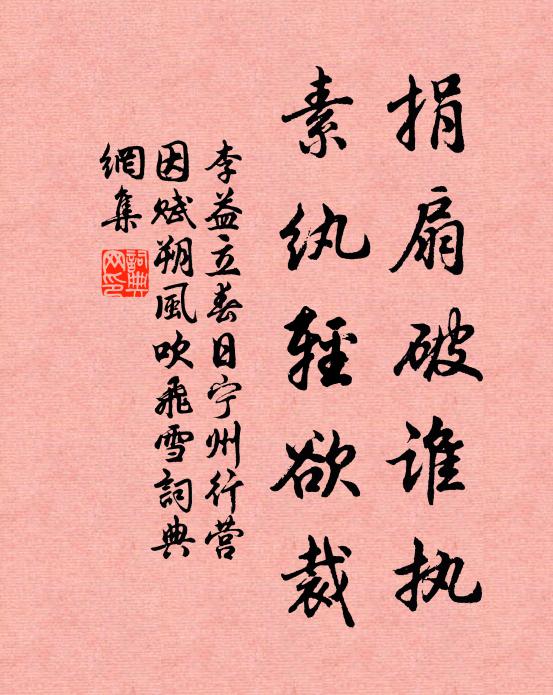 捐扇破谁执
素纨轻欲裁
李益立春日宁州行营
因赋朔風吹飛雪詞典
網集
詞典網印